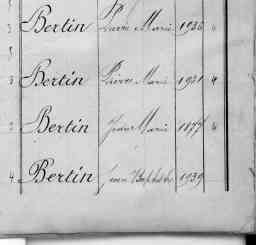 3 Bertin Pierre Marie 1936 4
3 Bertin Pierre Marie 1931 4
3 Bertin Jean Marie 1877 4
4 Bertin Jean Baptiste 1939